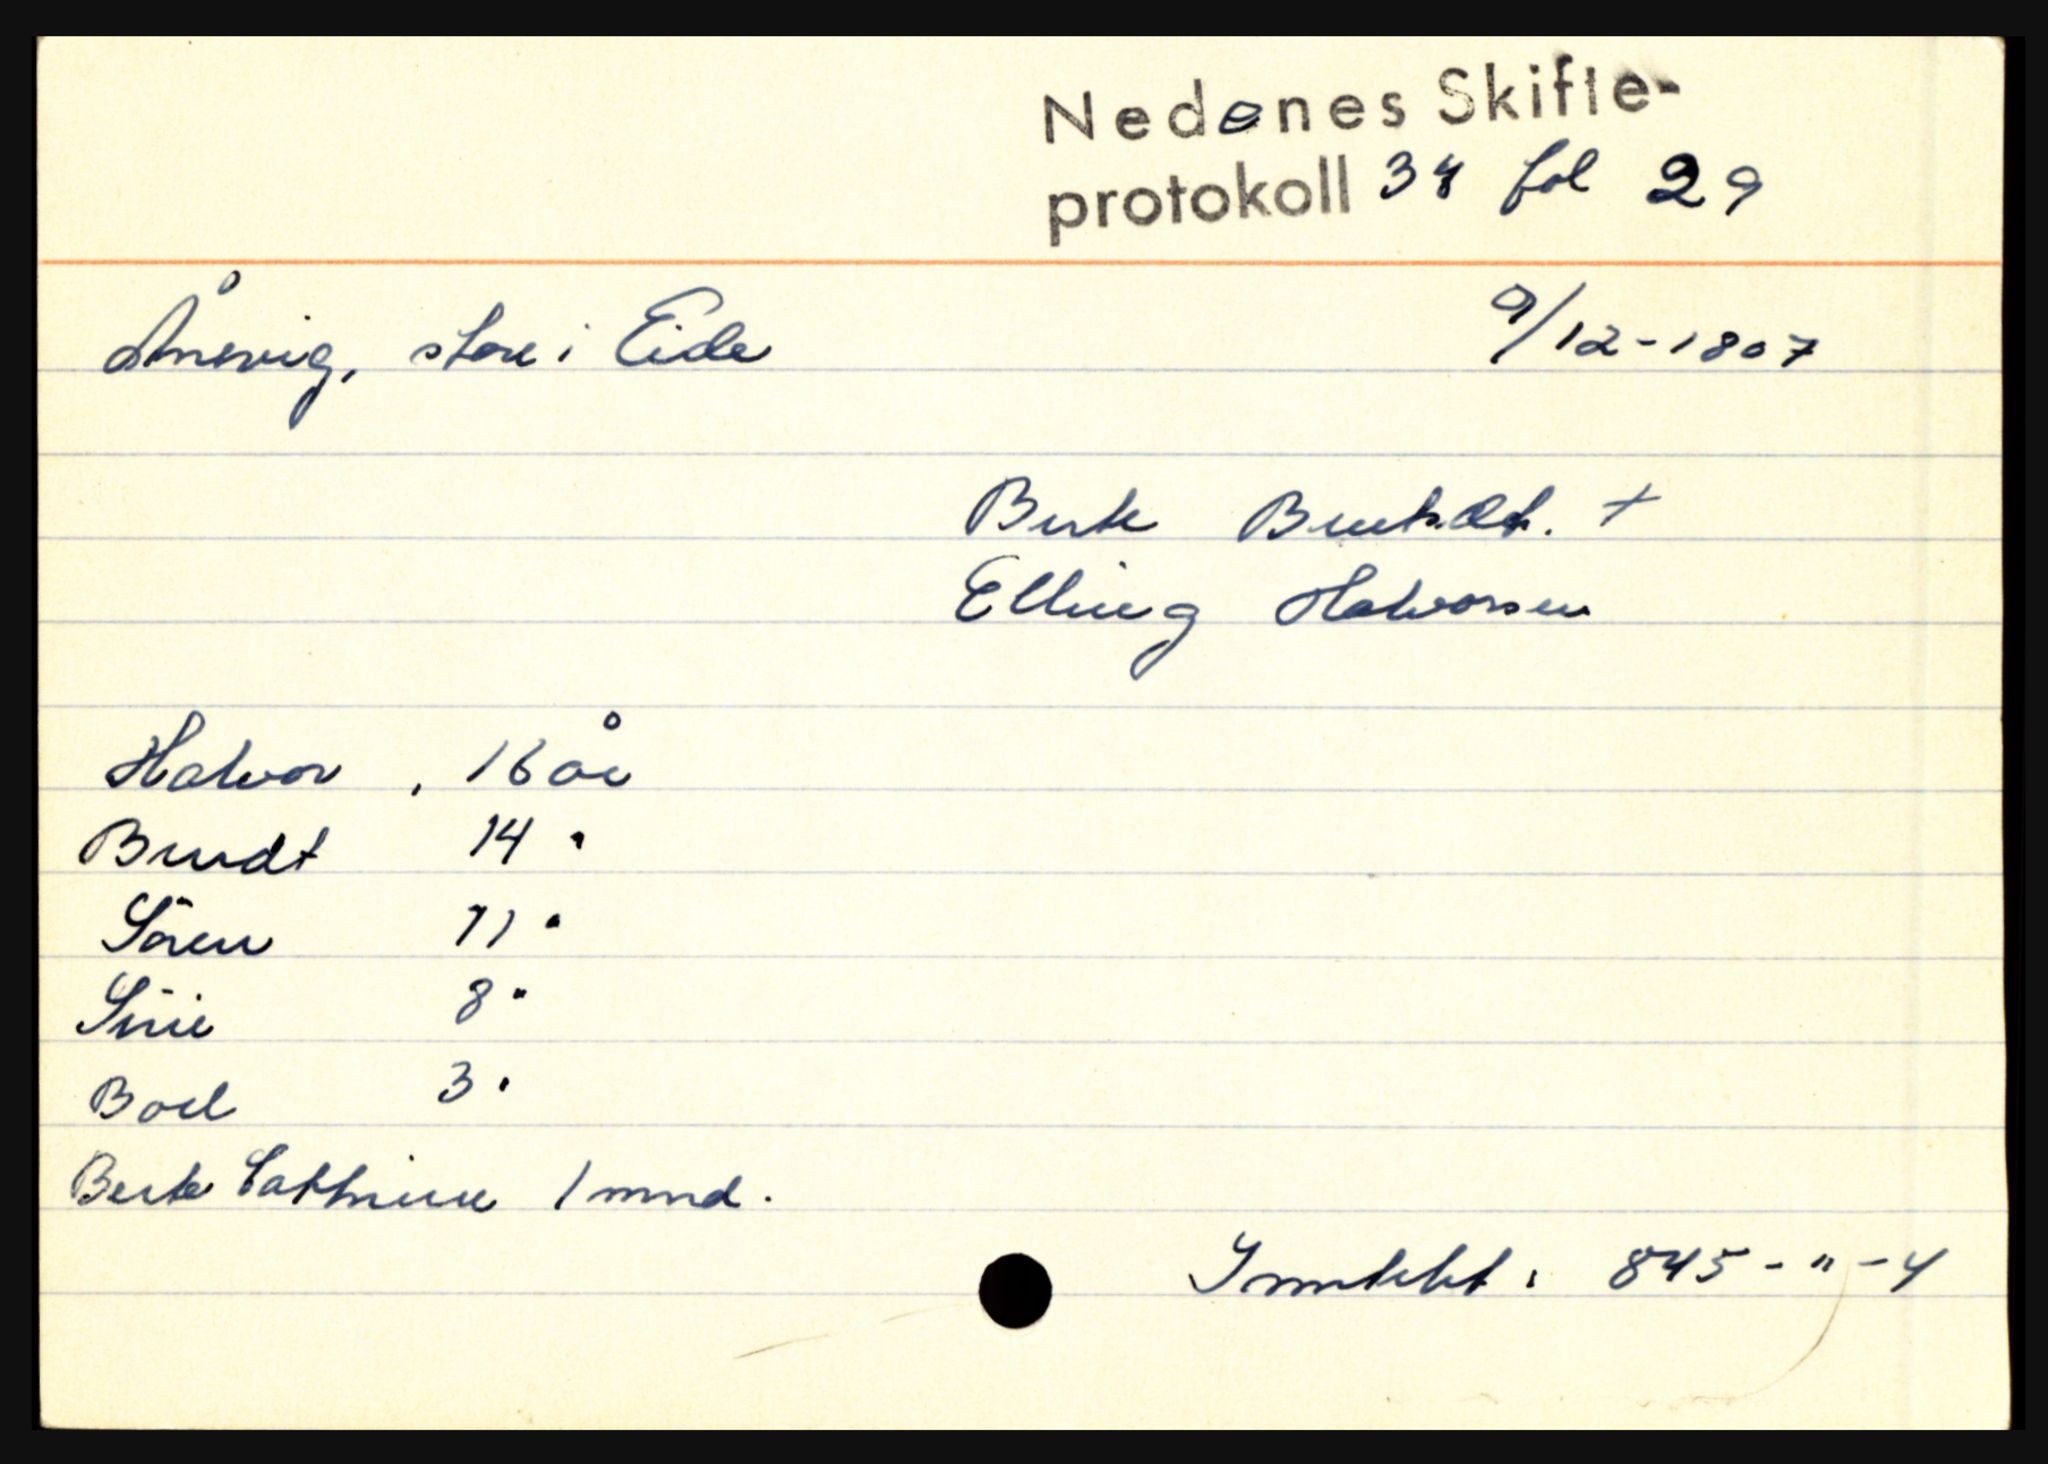 Nedenes Skifte-
protokoll 34 fol 29
Ånevig, store i Eide 9/12-1807
Berte Berntsdt. +
Elling Halvorsen
Halvor, 16 år
Berndt 14 "
Sören 11 "
Sirie 8 "
Boel 3 "
Berte Cathrine 1 mnd.
Inntekt: 845-"-4